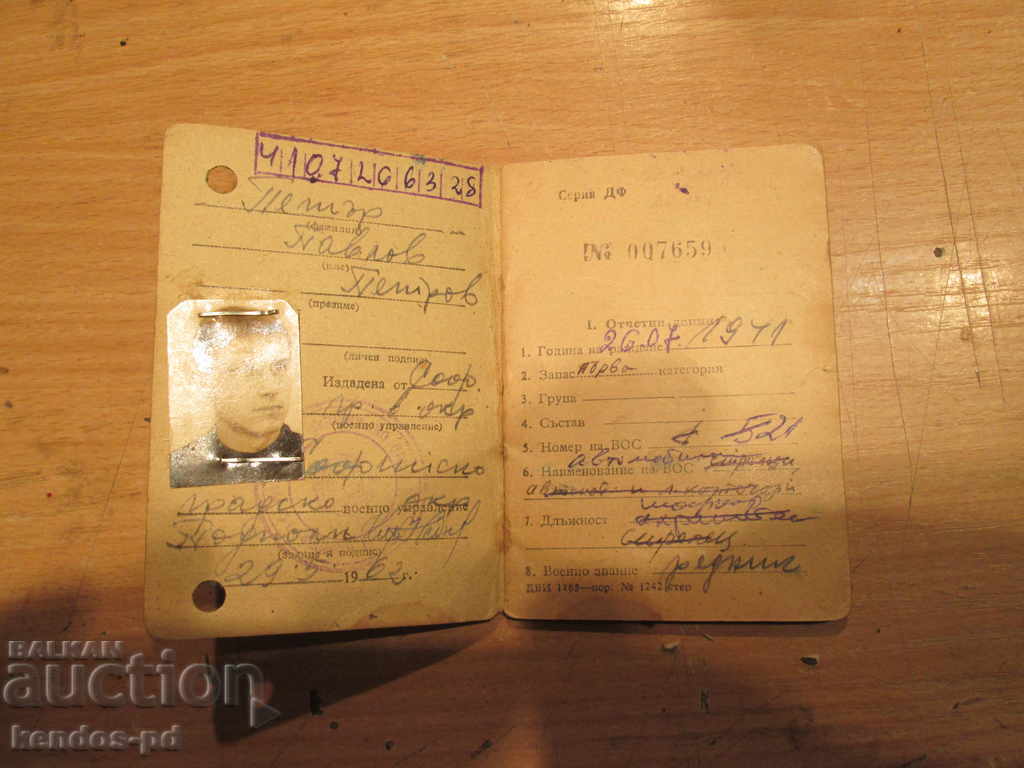 4107266328
Петър
(фамилия)
Павлов
(име)
Петров
(презиме)
(личен подпис)
Издадена от Соф.
гр. в. окр
(военно управление)
Софийско
градско военно управление
Подполк
(звание и подпис)
29 1962 г.
Серия ДФ
№ 007659
I. Отчетни данни
1. Година на раждане 26.07.1941
2. Запас първа категория
3. Група
4. Състав
5. Номер на ВОС 521
6. Наименование на ВОС
автомобили
7. Длъжност шофьор
8. Военно звание редник
ДВИ 1165—пор. № 1242
BALKAN
auction
kendos-pd